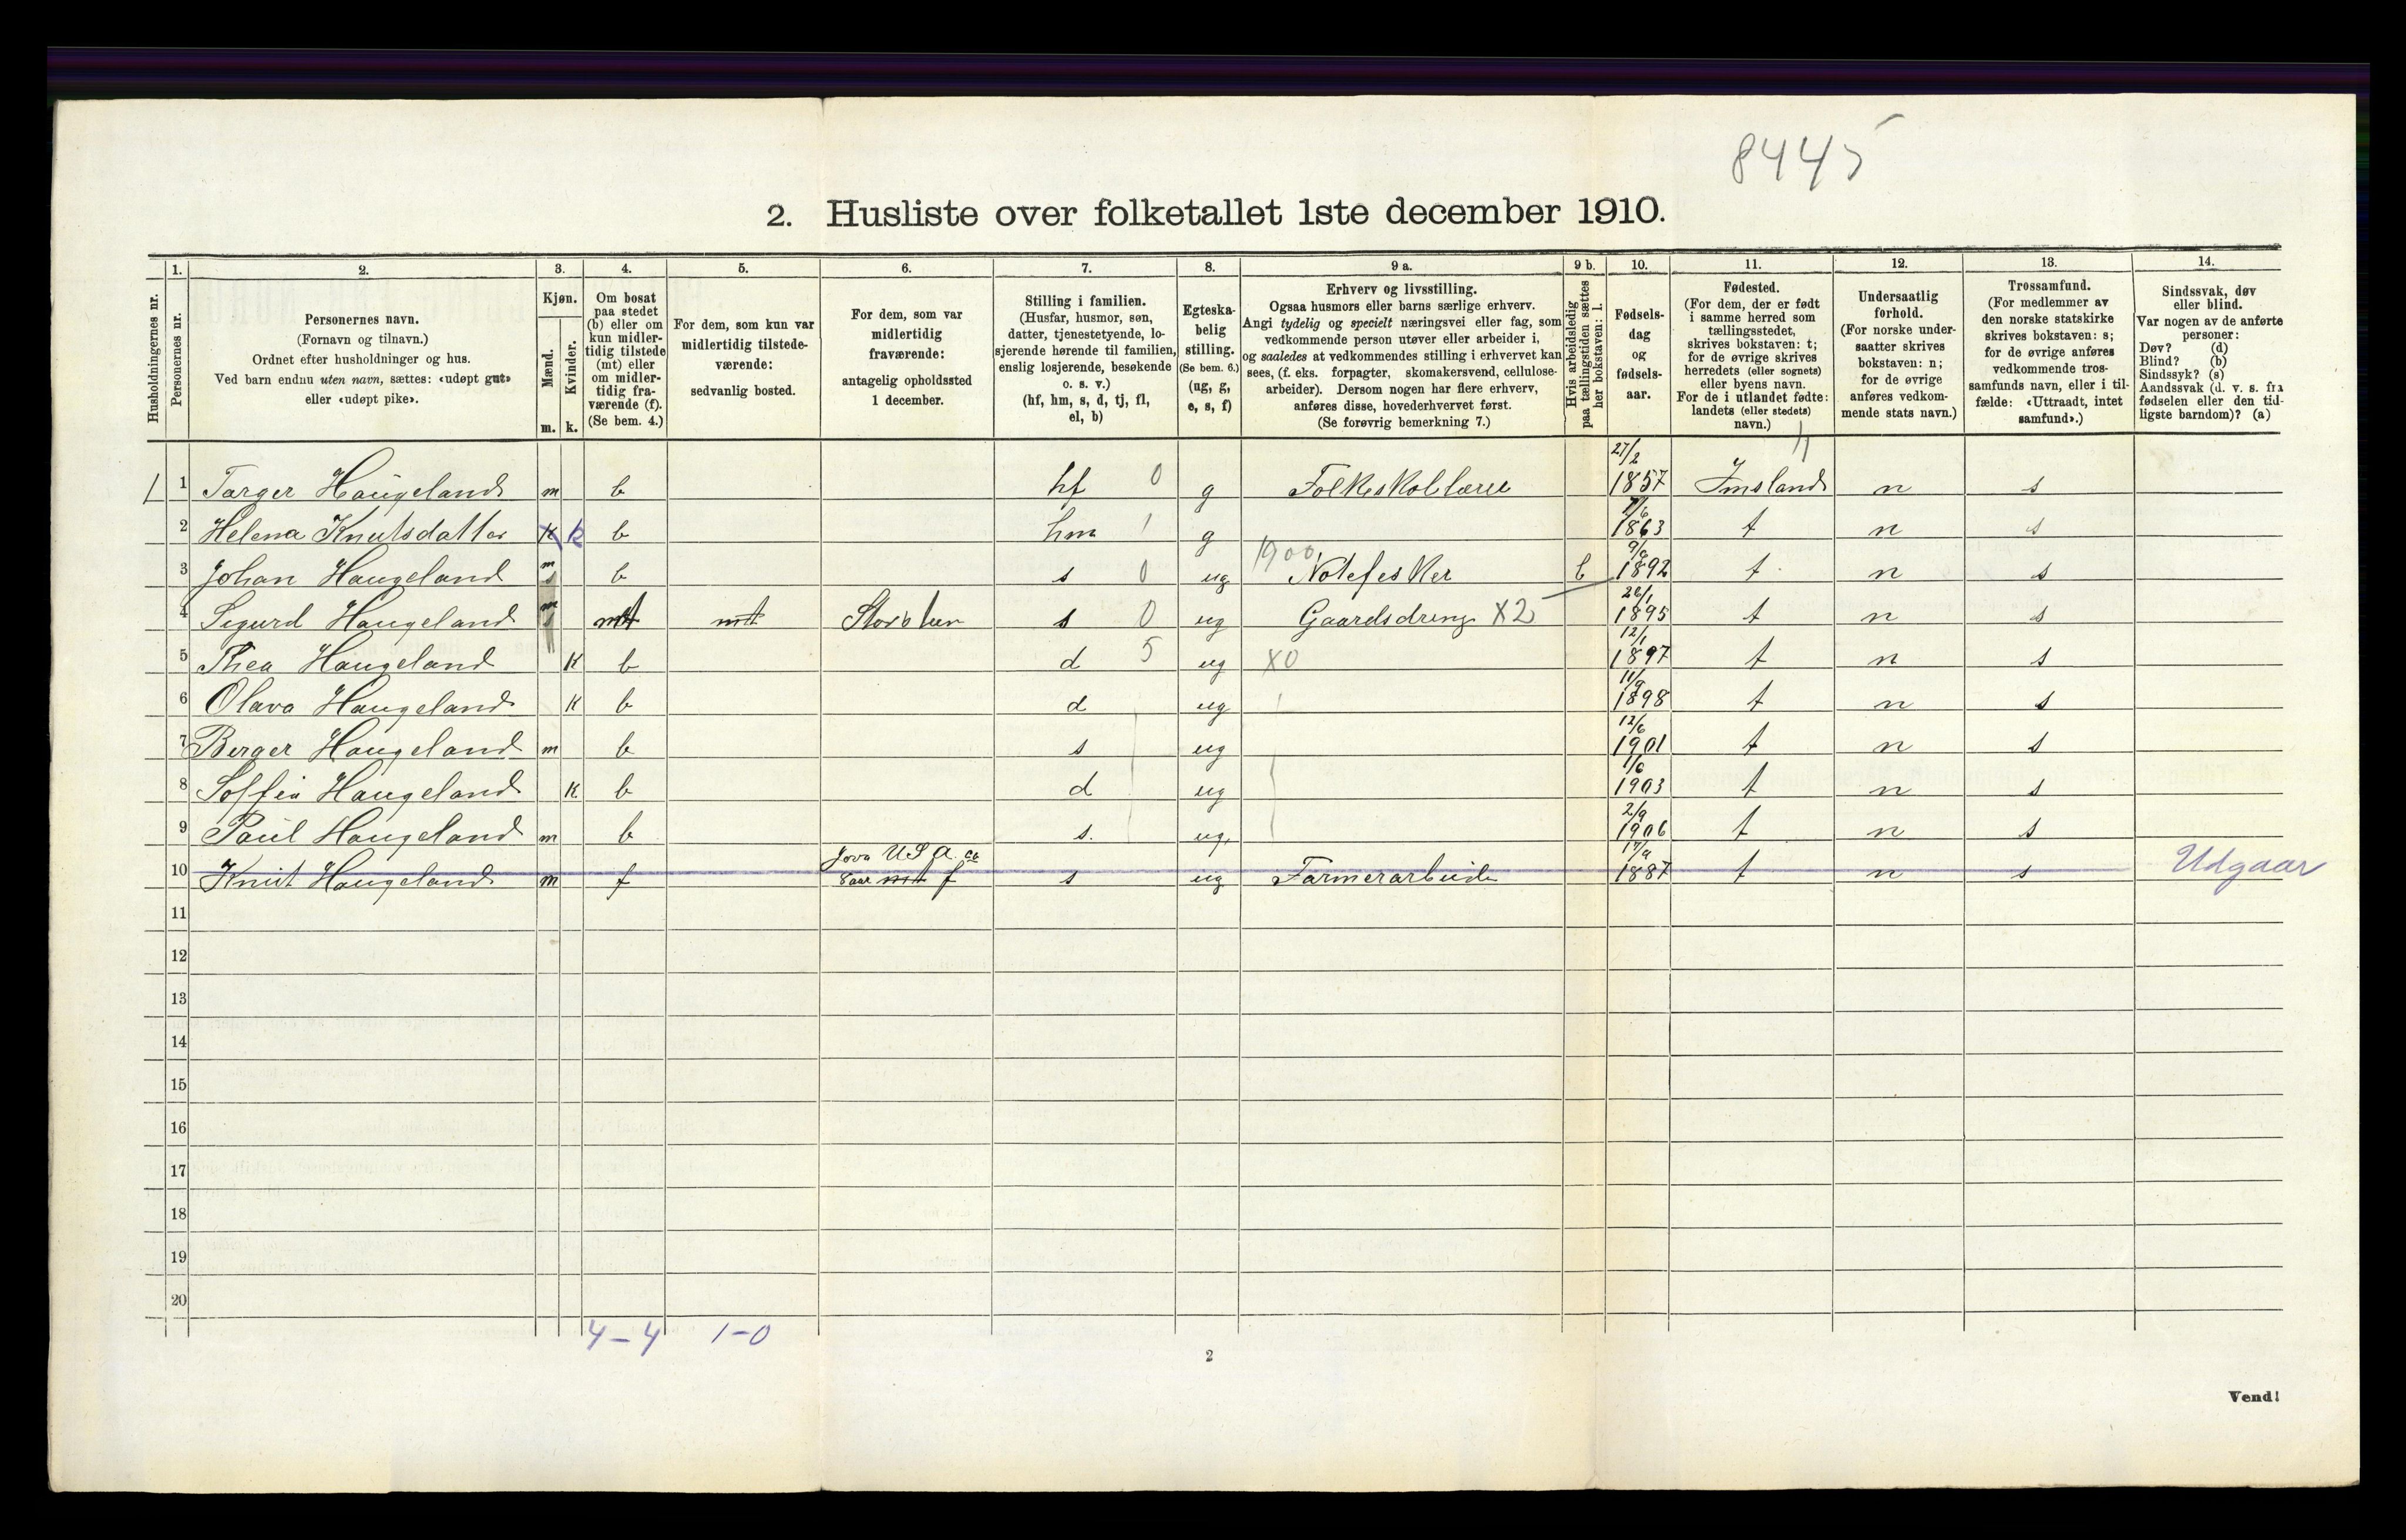 8445
2. Husliste over folketallet 1ste december 1910.
Husholdningernes nr.
1. Personernes nr.
2. Personernes navn.
(Fornavn og tilnavn.)
Ordnet efter husholdninger og hus.
Ved barn endnu uten navn, sættes: «udøpt gut»
eller «udøpt pike».
3. Kjøn.
Mænd. m.
Kvinder. k.
4. Om bosat
paa stedet
(b) eller om
kun midler-
tidig tilstede
(mt) eller
om midler-
tidig fra-
værende (f).
(Se bem. 4.)
5. For dem, som kun var
midlertidig tilstede-
værende:
sedvanlig bosted.
6. For dem, som var
midlertidig
fraværende:
antagelig opholdssted
1 december.
7. Stilling i familien.
(Husfar, husmor, søn,
datter, tjenestetyende, lo-
sjerende hørende til familien,
enslig losjerende, besøkende
o. s. v.)
(hf, hm, s, d, tj, fl,
el, b)
8. Egteska-
belig
stilling.
(Se bem. 6.)
(ug, g,
e, s, f)
9 a. Erhverv og livsstilling.
Ogsaa husmors eller barns særlige erhverv.
Angi tydelig og specielt næringsvei eller fag, som
vedkommende person utøver eller arbeider i,
og saaledes at vedkommendes stilling i erhvervet kan
sees, (f. eks. forpagter, skomakersvend, cellulose-
arbeider). Dersom nogen har flere erhverv,
anføres disse, hovederhvervet først.
(Se forøvrig bemerkning 7.)
9 b. Hvis arbeidsledig
paa tællingstiden sættes
her bokstaven: l.
10. Fødsels-
dag
og
fødsels-
aar.
11. Fødested.
(For dem, der er født
i samme herred som
tællingsstedet,
skrives bokstaven: t;
for de øvrige skrives
herredets (eller sognets)
eller byens navn.
For de i utlandet fødte:
landets (eller stedets)
navn.)
12. Undersaatlig
forhold.
(For norske under-
saatter skrives
bokstaven: n;
for de øvrige
anføres vedkom-
mende stats navn.)
13. Trossamfund.
(For medlemmer av
den norske statskirke
skrives bokstaven: s;
for de øvrige anføres
vedkommende tros-
samfunds navn, eller i til-
fælde: «Uttraadt, intet
samfund».)
14. Sindssvak, døv
eller blind.
Var nogen av de anførte
personer:
Døv? (d)
Blind? (b)
Sindssyk? (s)
Aandssvak (d. v. s. fra
fødselen eller den tid-
ligste barndom)? (a)
1 1 Targer Haugeland m b hf 0 g Folkeskolelærer 27/2 1857 Imsland n s
2 Helena Knutsdatter k k b hm 1 g 7/6 1863 t n s
3 Johan Haugeland m b s 0 ug 1900 Notefesker l 1892 t n s
4 Sigurd Haugeland m mt mt s 0 ug Gaardsdreng X2 26/1 1895 t n s
5 Thea Haugeland k b d 5 ug X0 12/1 1897 t n s
6 Olava Haugeland k b d ug 11/9 1898 t n s
7 Berger Haugeland m b s ug 12/6 1901 t n s
8 Soffia Haugeland k b d ug 1/6 1903 t n s
9 Paul Haugeland m b s. ug. 2/9 1906 t n s
10 Knut Haugeland m f Jova U S A. mt f s ug Farmerarbeide 17/9 1887 t n s Udgaar
11
12
13
14
15
16
17
18
19
20
4-4 1-0
2
Vend!